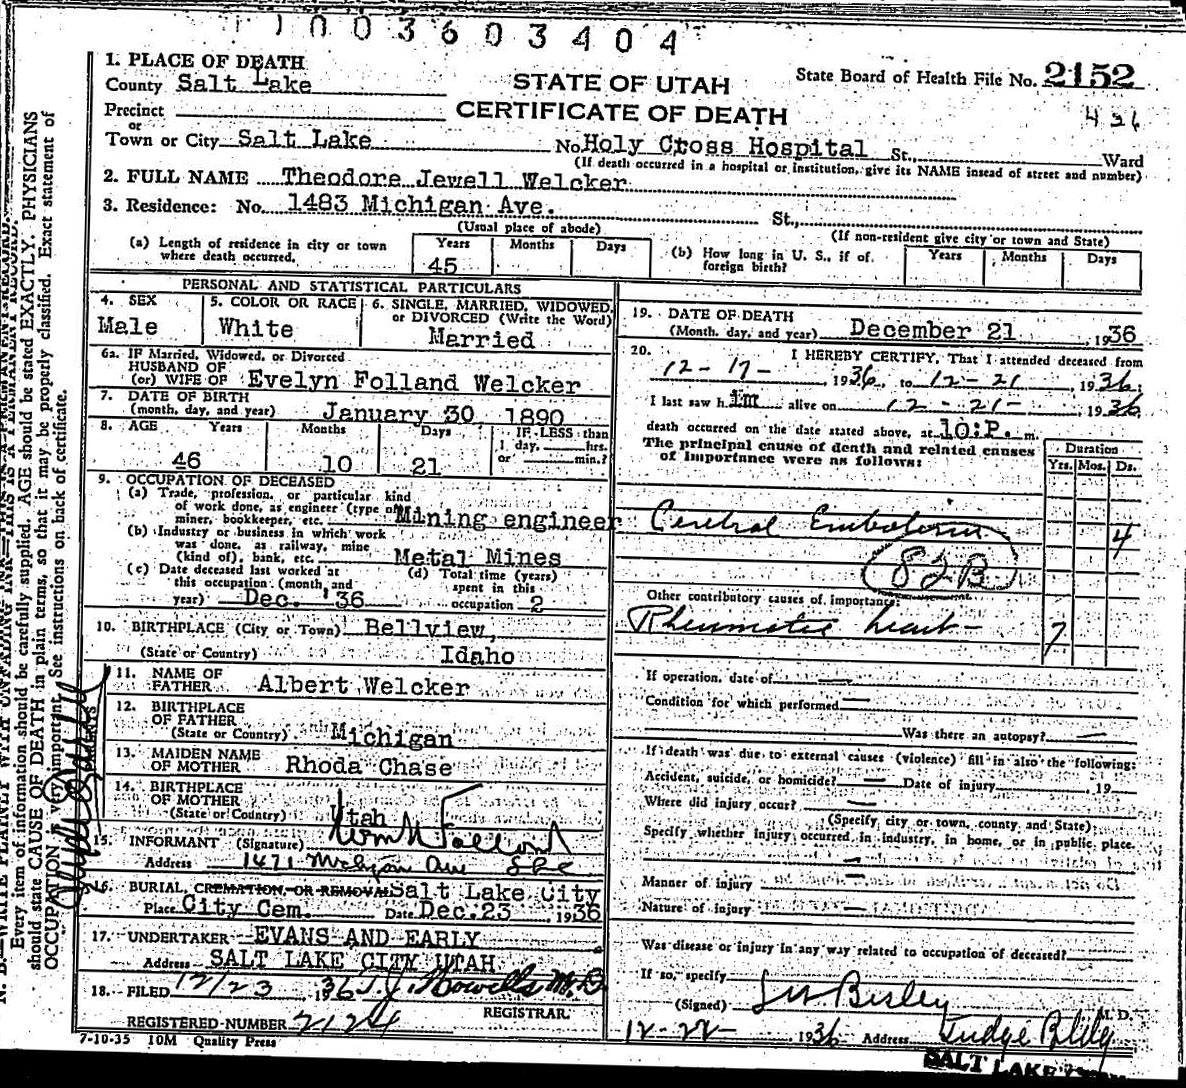 1003603404
1. PLACE OF DEATH
County Salt Lake
STATE OF UTAH
State Board of Health File No. 2152
Precinct
CERTIFICATE OF DEATH
436
or
Town or City Salt Lake No. Holy Cross Hospital St., Ward
(If death occurred in a hospital or institution, give its NAME insead of street and number)
2. FULL NAME Theodore Jewell Welcker
3. Residence: No. 1483 Michigan Ave. St.,
(Usual place of abode) (If non-resident give city or town and State)
(a) Length of residence in city or town where death occurred. Years 45 Months Days
(b) How long in U. S., if of foreign birth? Years Months Days
PERSONAL AND STATISTICAL PARTICULARS
4. SEX Male
5. COLOR OR RACE White
6. SINGLE, MARRIED, WIDOWED, or DIVORCED (Write the Word) Married
6a. IF Married, Widowed, or Divorced
HUSBAND OF
(or) WIFE OF Evelyn Folland Welcker
7. DATE OF BIRTH
(month, day, and year) January 30, 1890
8. AGE Years Months Days IF LESS than
1 day, hrs.
46 10 21 or min.?
9. OCCUPATION OF DECEASED
(a) Trade, profession, or particular kind
of work done, as engineer (type of
miner, bookkeeper, etc. Mining engineer
(b) Industry or business in which work
was done, as railway, mine
(kind of), bank, etc. Metal Mines
(c) Date deceased last worked at
this occupation (month, and
year) Dec. '36
(d) Total time (years)
spent in this
occupation 2
10. BIRTHPLACE (City or Town) Bellview,
(State or Country) Idaho
11. NAME OF
FATHER Albert Welcker
12. BIRTHPLACE
OF FATHER
(State or Country) Michigan
13. MAIDEN NAME
OF MOTHER Rhoda Chase
14. BIRTHPLACE
OF MOTHER
(State or Country) Utah
15. INFORMANT (Signature) Wm Folland
Address 1471 Michigan Ave SLC
16. BURIAL, CREMATION, OR REMOVAL Salt Lake City
Place City Cem. Date Dec. 23, 1936
17. UNDERTAKER EVANS AND EARLY
Address SALT LAKE CITY UTAH
18. FILED 12/23 1936 T.J. Howells M.D
REGISTRAR.
REGISTERED NUMBER 2124
7-10-35 10M Quality Press
19. DATE OF DEATH
(Month, day, and year) December 21, 1936
20. I HEREBY CERTIFY, That I attended deceased from
12-17-, 1936, to 12-21-, 1936;
I last saw him alive on 12-21-, 1936
death occurred on the date stated above, at 10:P. m.
The principal cause of death and related causes
of importance were as follows:
Duration
Yrs. Mos. Ds.
Embolism 4
82B
Other contributory causes of importance:
Rheumatic heart- 7
If operation, date of
Condition for which performed
Was there an autopsy?
If death was due to external causes (violence) fill in also the following:
Accident, suicide, or homicide? Date of injury, 19
Where did injury occur?
(Specify city or town, county and State)
Specify whether injury occurred in industry, in home, or in public place.
Manner of injury
Nature of injury
Was disease or injury in any way related to occupation of deceased?
If so, specify
(Signed) M. D.
12-22-, 1936 Address Judge Bldg
SALT LAKE
Every item of information should be carefully supplied. AGE should be stated EXACTLY. PHYSICIANS
should state CAUSE OF DEATH in plain terms, so that it may be properly classified. Exact statement of
OCCUPATION is very important. See instructions on back of certificate.